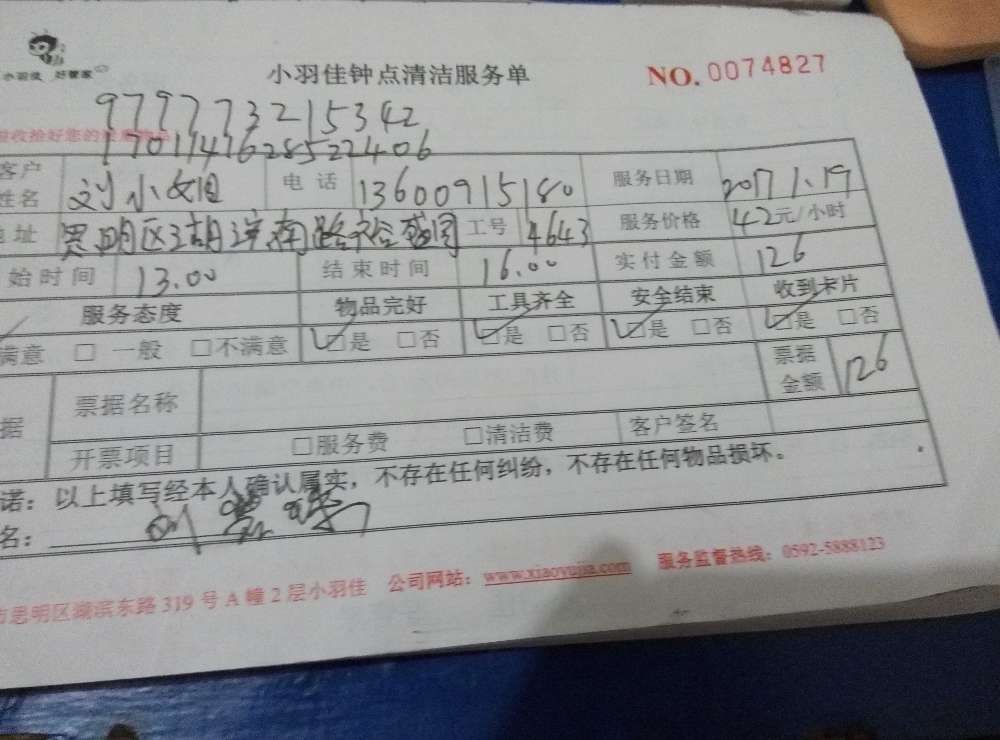 小羽佳 好管家
小羽佳钟点清洁服务单 NO.0074827
979773215342
17011416285522406
客户姓名 刘小姐 电话 13600915180 服务日期 2017.1.19
地址 思明区湖滨南路 工号 4643 服务价格 42元/小时
始时间 13.00 结束时间 16.00 实付金额 126
服务态度 物品完好 工具齐全 安全结束 收到卡片
满意 □ 一般 □不满意 ☑是 □否 ☑是 □否 ☑是 □否 ☑是 □否
据 票据名称 票据金额 126
开票项目 □服务费 □清洁费 客户签名
诺：以上填写经本人确认属实，不存在任何纠纷，不存在任何物品损坏。
名：
市思明区湖滨东路319号A幢2层小羽佳 公司网站：www.xiaoyujia.com 服务监督热线：0592-5888123